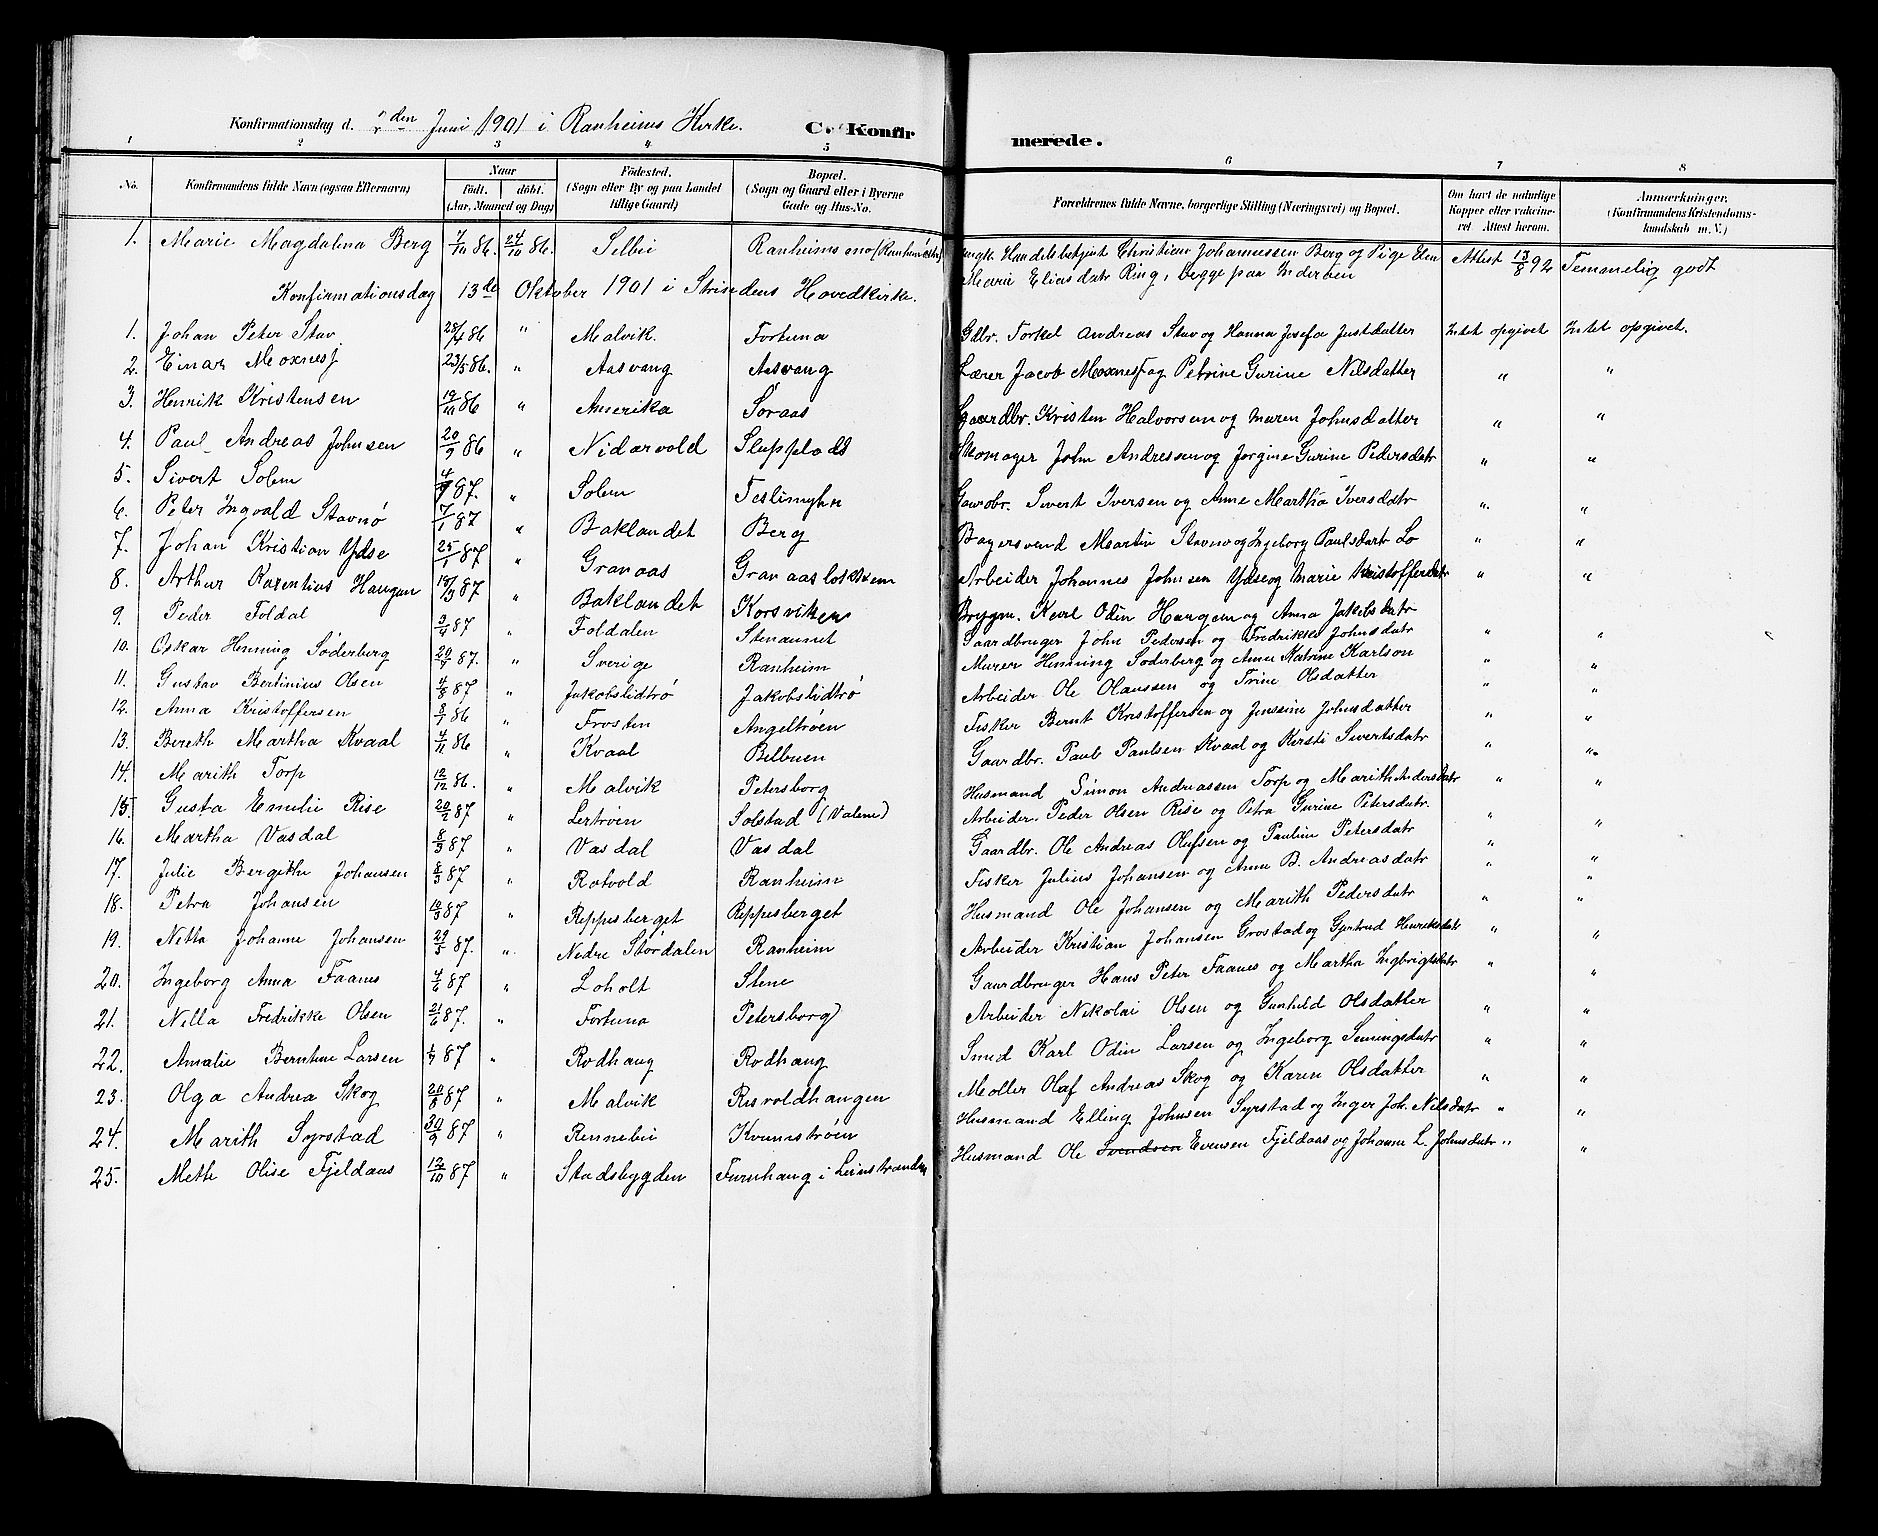 Konfirmationsdag d. den Juni 1901 i Ranheims Kirke. C. Konfirmerede.
1 2 3 4 5 6 7 8
No. Konfirmandens fulde Navn (ogsaa Efternavn) Naar født. døbt. (Aar, Maaned og Dag) Fødested. (Sogn eller By og paa Landet tillige Gaard) Bopæl. (Sogn og Gaard eller i Byerne Gade og Hus-No. Forældrenes fulde Navne, borgerlige Stilling (Næringsvei) og Bopæl. Om havt de naturlige Kopper eller vakcineret. Attest herom. Anmærkninger. (Konfirmandens Kristendomskundskab m. V.)
1. Marie Magdalena Berg 7/10 86. 24/10 86. Selbu Ranheimsmo (Ranheim) Ungk. Handelsbetjent Christian Johannessen Berg og Pige Elen Marie Eliasdatr Ring, begge paa Inderøen Attest 13/8 92 Temmelig godt
Konfirmationsdag 13de Oktober 1901 i Strindens Hovedkirke.
1. Johan Peter Stav 28/4 86 " Malvik. Fortuna Gdbr. Torkel Andreas Stav og Hanna Josefa Justdatter Intet opgivet Intet opgivet.
2. Einar Moxnesj 23/5 86. " Aasvang Aasvang Lærer Jacob Moxnesj og Petrine Gurine Nilsdatter " "
3. Henrik Kristensen 19/10 86 " Amerika Søraas Gaardbr. Kristen Halvorsen og Maren Johnsdatter " "
4. Paul Andreas Johnsen 20/9 86 " Nidarvold Sluppelads Skomager John Andressen og Jørgine Gurine Pedersdatr " "
5. Sivert Solem 4/9 87. " Solem Teslimyhr Gaardbr. Sivert Iversen og Anne Martha Iversdatr " "
6. Peter Ingvald Stavnø 7/1 87 " Baklandet Berg Bagersvend Martin Stavnø og Ingeborg Paulsdatr Lo " "
7. Johan Kristian Ydse 25/1 87 " Granaas Granaaslokken Arbeider Johannes Johnsen Ydse og Marie Kristoffersdatr " "
8. Arthur Karentius Haugen 19/3 87 " Baklandet Korsviken Brygm. Karl Odin Haugen og Anna Jakobsdatr
9. Peder Foldal 3/4 87 " Foldalen Stenaunet Gaardbruger John Pedersen og Fredrikke Johnsdatr " "
10. Oskar Henning Søderberg 20/7 87. " Sverige Ranheim Murer Henning Søderberg og Anna Katrine Karlson " "
11. Gustav Bertinius Olsen 4/8 87 " Jakobslidtrø Jakobslidtrø Arbeider Ole Olaussen og Trine Olsdatter " "
12. Anna Kristoffersen 8/1 86 " Frosten Angeltrøen Fisker Bernt Kristoffersen og Jenssine Johnsdatter " "
13. Bereth Martha Kvaal 4/11 86 " Kvaal Belbuen Gaardbr. Paul Paulsen Kvaal og Kersti Sivertsdatr " "
14. Marith Torp 12/12 86. " Malvik Petersborg Husmand Simon Andreassen Torp og Marith Andersdatr " "
15. Gusta Emilie Rise 20/2 87 " Lertrøen Solstad (Valene) Arbeider. Peder Olsen Rise og Petra Gurine Petersdatr. " "
16. Martha Vasdal 8/3 87 " Vasdal Vasdal Gaardbr. Ole Andreas Olufsen og Pauline Petersdatr " "
17. Julie Bergithe Johansen 8/3 87 " Rotvold Ranheim Fisker Julius Johansen og Anne B. Andreasdatr " "
18. Petra Johansen 10/3 87 " Reppesberget Reppesberget Husmand Ole Johansen og Marith Pedersdatr " "
19. Netta Johanne Johansen 29/5 87. " Nedre Stördalen Ranheim Arbeider Kristian Johansen Grostad og Gjertrud Henriksdatr " "
20. Ingeborg Anna Faanes 4/6 87 " Loholt Stene Gaardbruger Hans Peter Faanes og Martha Ingbrigtsdatr " "
21. Nilla Fredrikke Olsen 21/6 87. " Fortuna Petersborg) Arbeider Nikolai Olsen og Gunhild Olsdatter " "
22. Amalie Berntine Larsen 1/7 87 " Rodhaug Rodhaug Smed Karl Odin Larsen og Ingeborg Senningsdatr " "
23. Olga Andrea Skog 20/8 87 " Malvik Risvoldhaugen Møller Olaf Andreas Skog og Karen Olsdatter " "
24. Marith Syrstad 30/9 87 " Rennebu Kvemstrøen Husmand Elling Johnsen Syrstad og Inger Joh. Nilsdatr " "
25. Mette Olise Fjeldaas 12/10 87 " Stadsbygden Furuhaug i Leinstranden Husmand Ole Svendsen Evensen Fjeldaas og Johanne L. Johnsdatr " "